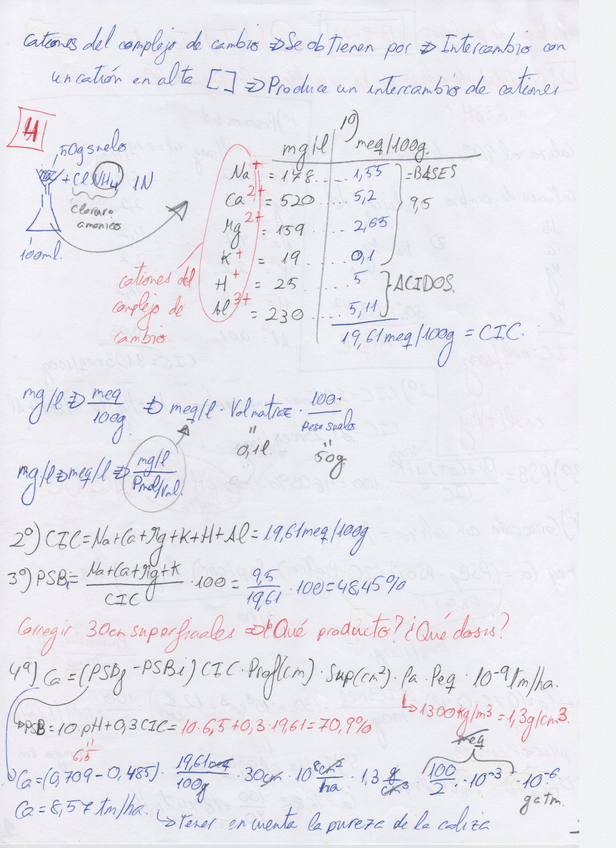 Cationes del complejo de cambio ⇒ Se obtienen por ⇒ Intercambio con
un catión en alta [ ] ⇒ Produce un intercambio de cationes
4
50g suelo
+ClNH4 1N
Cloruro
amonico
100ml.
mg/l 1º) meq/100g.
Na+ = 178 .... 1,55 =BASES
Ca2+ = 520 .... 5,2 9,5
Mg2+ = 159 .... 2,65
K+ = 19 .... 0,1
H+ = 25 .... 5 ACIDOS.
Al3+ = 230 .... 5,11
19,61meq/100g = CIC.
cationes del
complejo de
cambio
mg/l ⇒ meq/100g ⇒ meq/l · Vol matraz · 100/Peso suelo
0,1l. 50g
mg/l ⇒ meq/l ⇒ mg/l / Pmol/val.
2º) CIC=Na+Ca+Mg+K+H+Al=19,61meq/100g
3º) PSBi = Na+Ca+Mg+K/CIC · 100 = 9,5/19,61 · 100 = 48,45%
Corregir 30cm superficiales ⇒ ¿Qué producto? ¿Qué dosis?
4º) Ca = (PSBf - PSBi) CIC · Prof(cm) · Sup(cm2) · ρa · Peq · 10-9 tm/ha.
1300kg/m3 = 1,3g/cm3.
PSB=10·pH+0,3CIC=10·6,5+0,3·19,61=70,9%
6,5
Ca=(0,709-0,485) · 19,61meq/100g · 30cm · 10^8 cm2/ha · 1,3 g/cm3 · 100/2 · 10-3 · 10-6
meq
g a tm.
Ca=8,57 tm/ha. ↳ tener en cuenta la pureza de la caliza